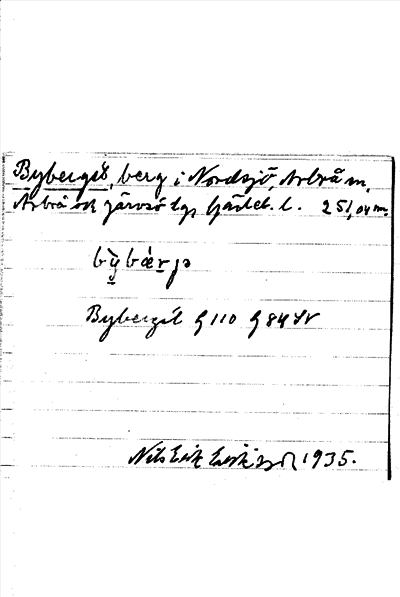 Byberget, berg i Nordsjö, Arbrå m.
Arbrå ock Järvsö tgs Gävleb. l. 251,04 m.
bỳbær̀jə
Byberget G 110 G 84 SV
Nils Erik Eriksson 1935.